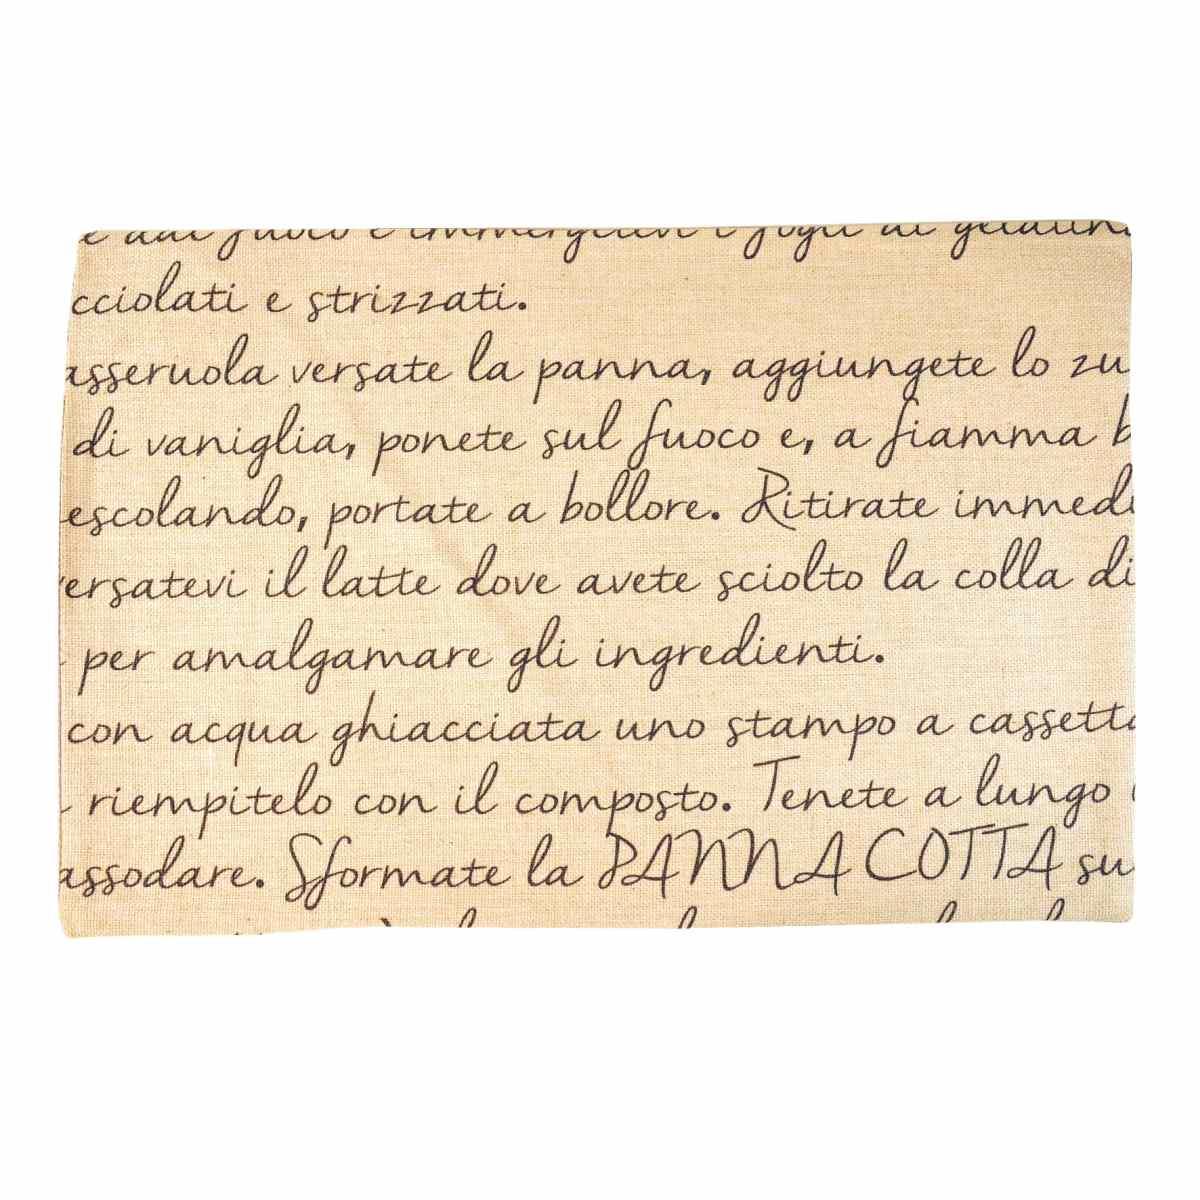 e dal fuoco e immergetevi i fogli di gelatin
cciolati e strizzati.
asseruola versate la panna, aggiungete lo zu
di vaniglia, ponete sul fuoco e, a fiamma b
escolando, portate a bollore. Ritirate immedi
versatevi il latte dove avete sciolto la colla di
per amalgamare gli ingredienti.
con acqua ghiacciata uno stampo a cassetta
riempitelo con il composto. Tenete a lungo
assodare. Sformate la PANNA COTTA su